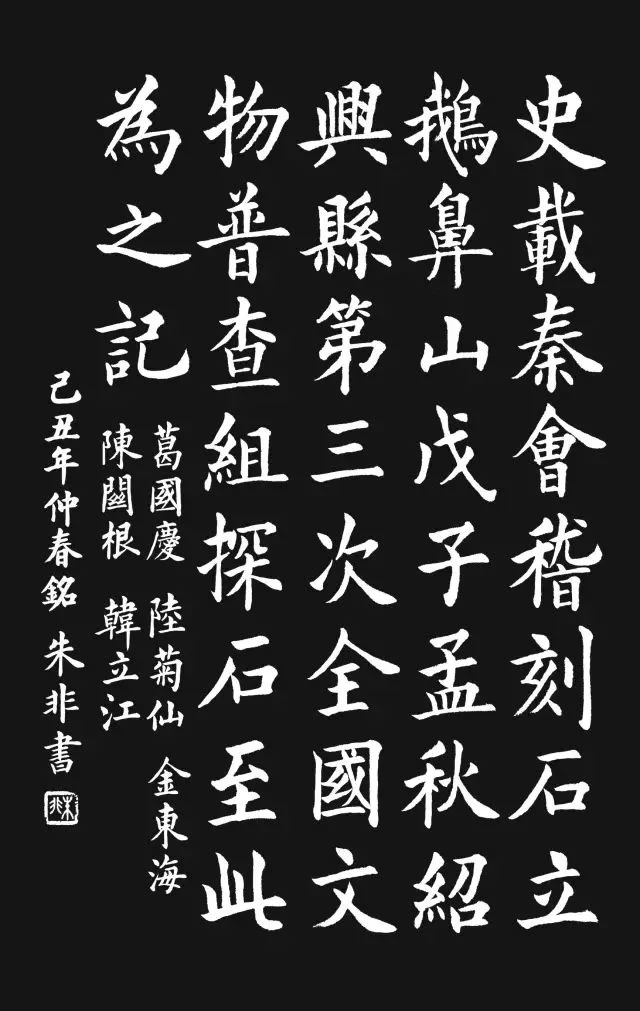 史載秦會稽刻石立
鵝鼻山戊子孟秋紹
興縣第三次全國文
物普查組探石至此
為之記
葛國慶 陸菊仙 金東海
陳關根 韓立江
己丑年仲春銘 朱非書